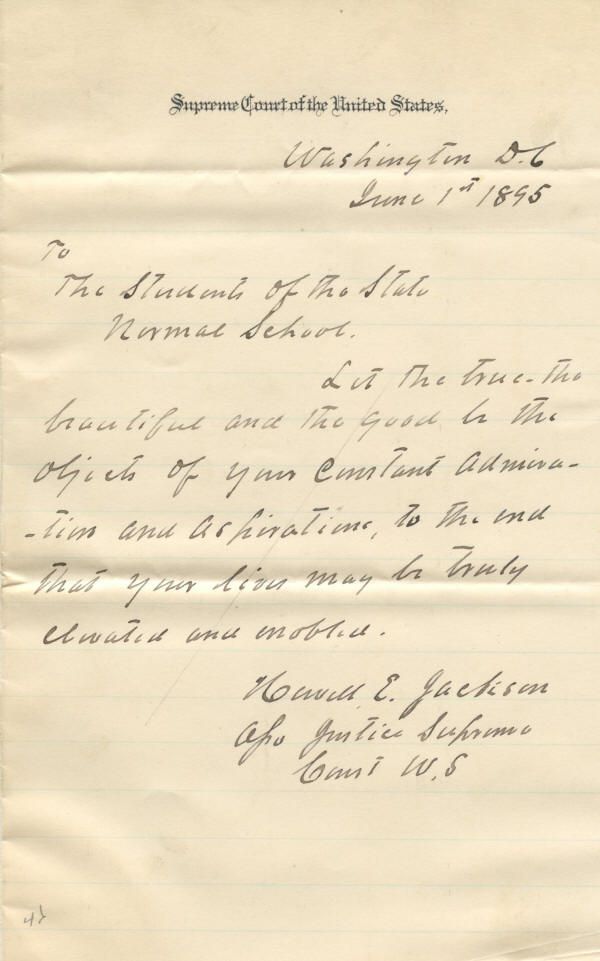 Supreme Court of the United States.
Washington D.C
June 1st 1895
To
The Students of the State
Normal School.
Let the true - the
beautiful and the good be the
objects of your constant admira-
-tion and aspirations, to the end
that your lives may be truly
elevated and enobled.
Howell E. Jackson
Asso Justice Supreme
Court U.S